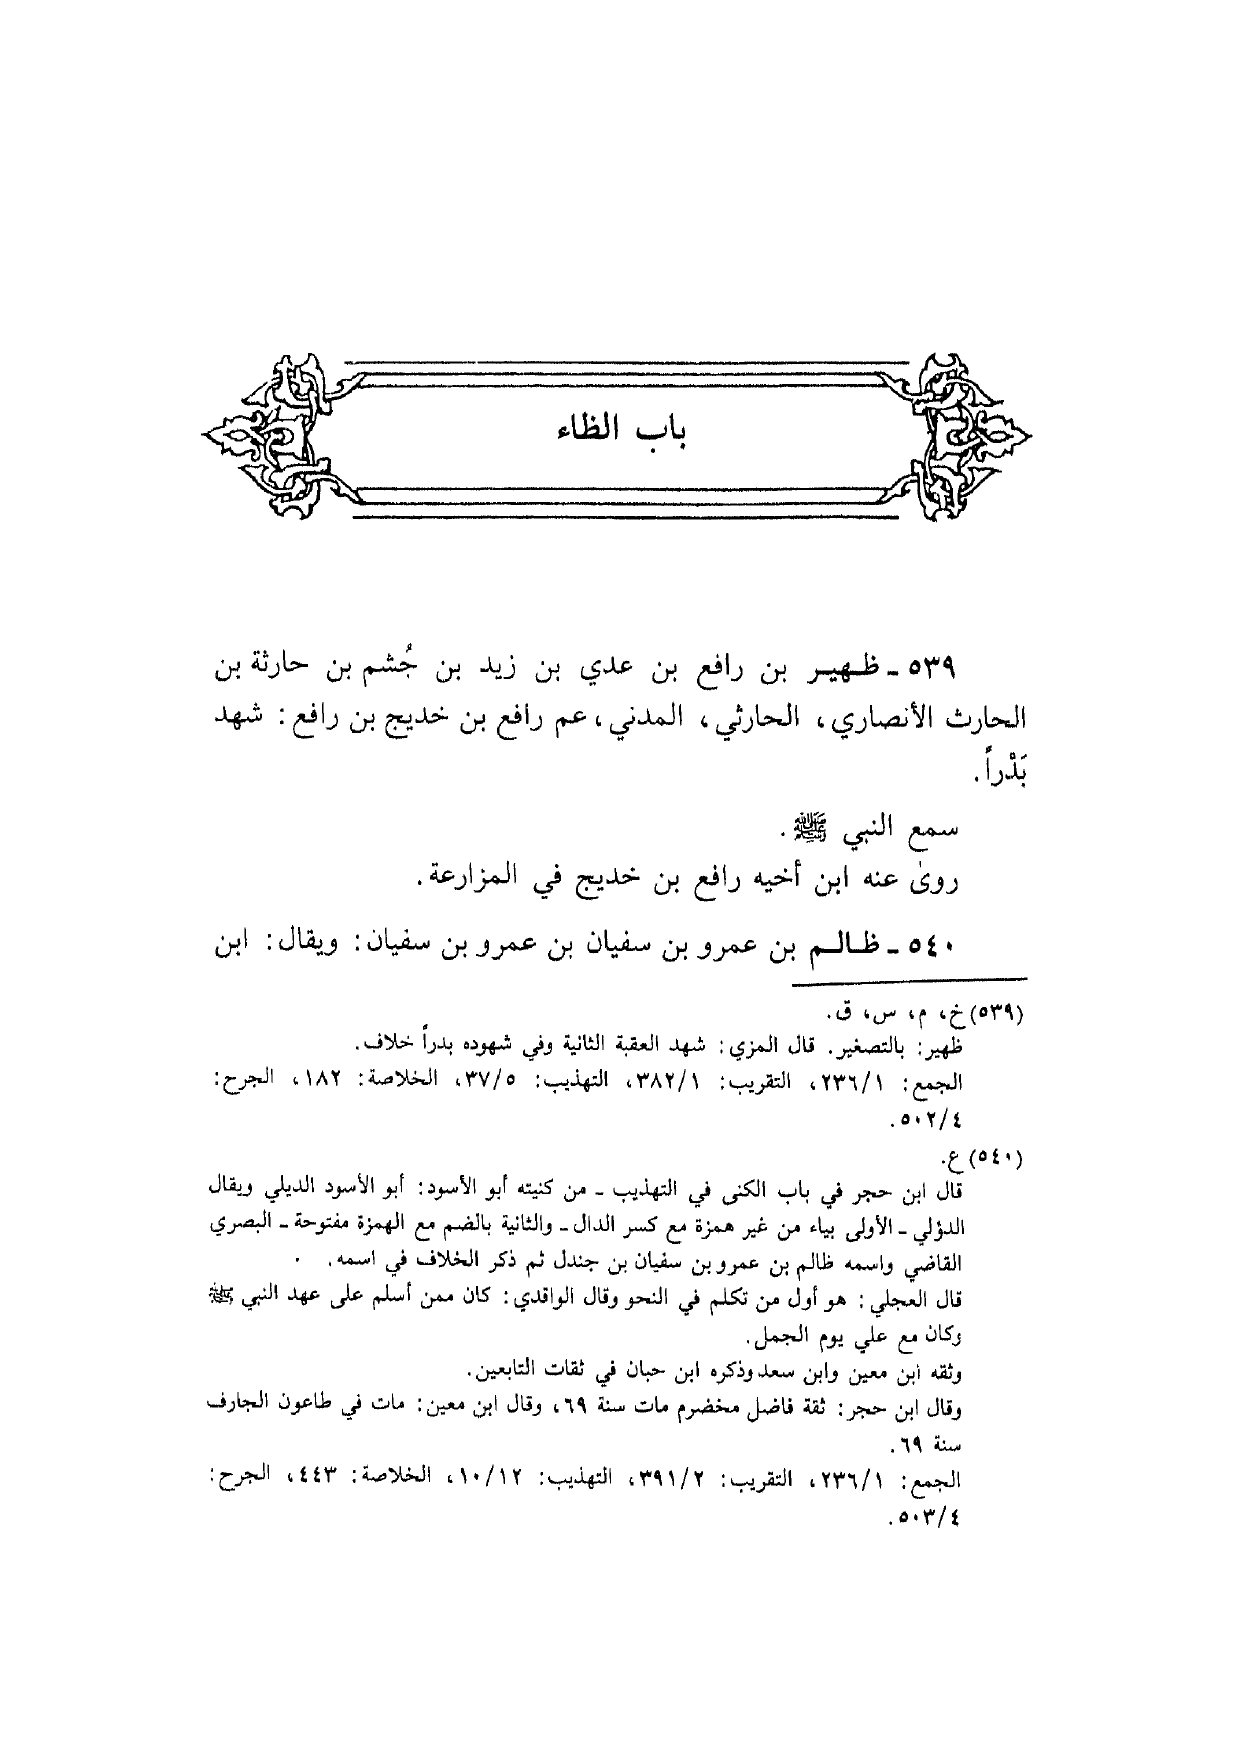 باب الظاء
٥٣٩ ـ ظهير بن رافع بن عدي بن زيد بن جُشم بن حارثة بن
الحارث الأنصاري، الحارثي، المدني، عم رافع بن خديج بن رافع: شهد
بَدْراً.
سمع النبي ﷺ.
روىٰ عنه ابن أخيه رافع بن خديج في المزارعة.
٥٤٠ ـ ظالم بن عمرو بن سفيان بن عمرو بن سفيان: ويقال: ابن
(٥٣٩) خ، م، س، ق.
ظهير: بالتصغير. قال المزي: شهد العقبة الثانية وفي شهوده بدراً خلاف.
الجمع: ٢٣٦/١، التقريب: ٣٨٢/١، التهذيب: ٣٧/٥، الخلاصة: ١٨٢، الجرح:
٥٠٢/٤.
(٥٤٠) ع.
قال ابن حجر في باب الكنى في التهذيب ـ من كنيته أبو الأسود: أبو الأسود الديلي ويقال
الدؤلي ـ الأولى بياء من غير همزة مع كسر الدال ـ والثانية بالضم مع الهمزة مفتوحة ـ البصري
القاضي واسمه ظالم بن عمرو بن سفيان بن جندل ثم ذكر الخلاف في اسمه.
قال العجلي: هو أول من تكلم في النحو وقال الواقدي: كان ممن أسلم على عهد النبي ﷺ
وكان مع علي يوم الجمل.
وثقه ابن معين وابن سعد وذكره ابن حبان في ثقات التابعين.
وقال ابن حجر: ثقة فاضل مخضرم مات سنة ٦٩، وقال ابن معين: مات في طاعون الجارف
سنة ٦٩.
الجمع: ٢٣٦/١، التقريب: ٣٩١/٢، التهذيب: ١٠/١٢، الخلاصة: ٤٤٣، الجرح:
٥٠٣/٤.